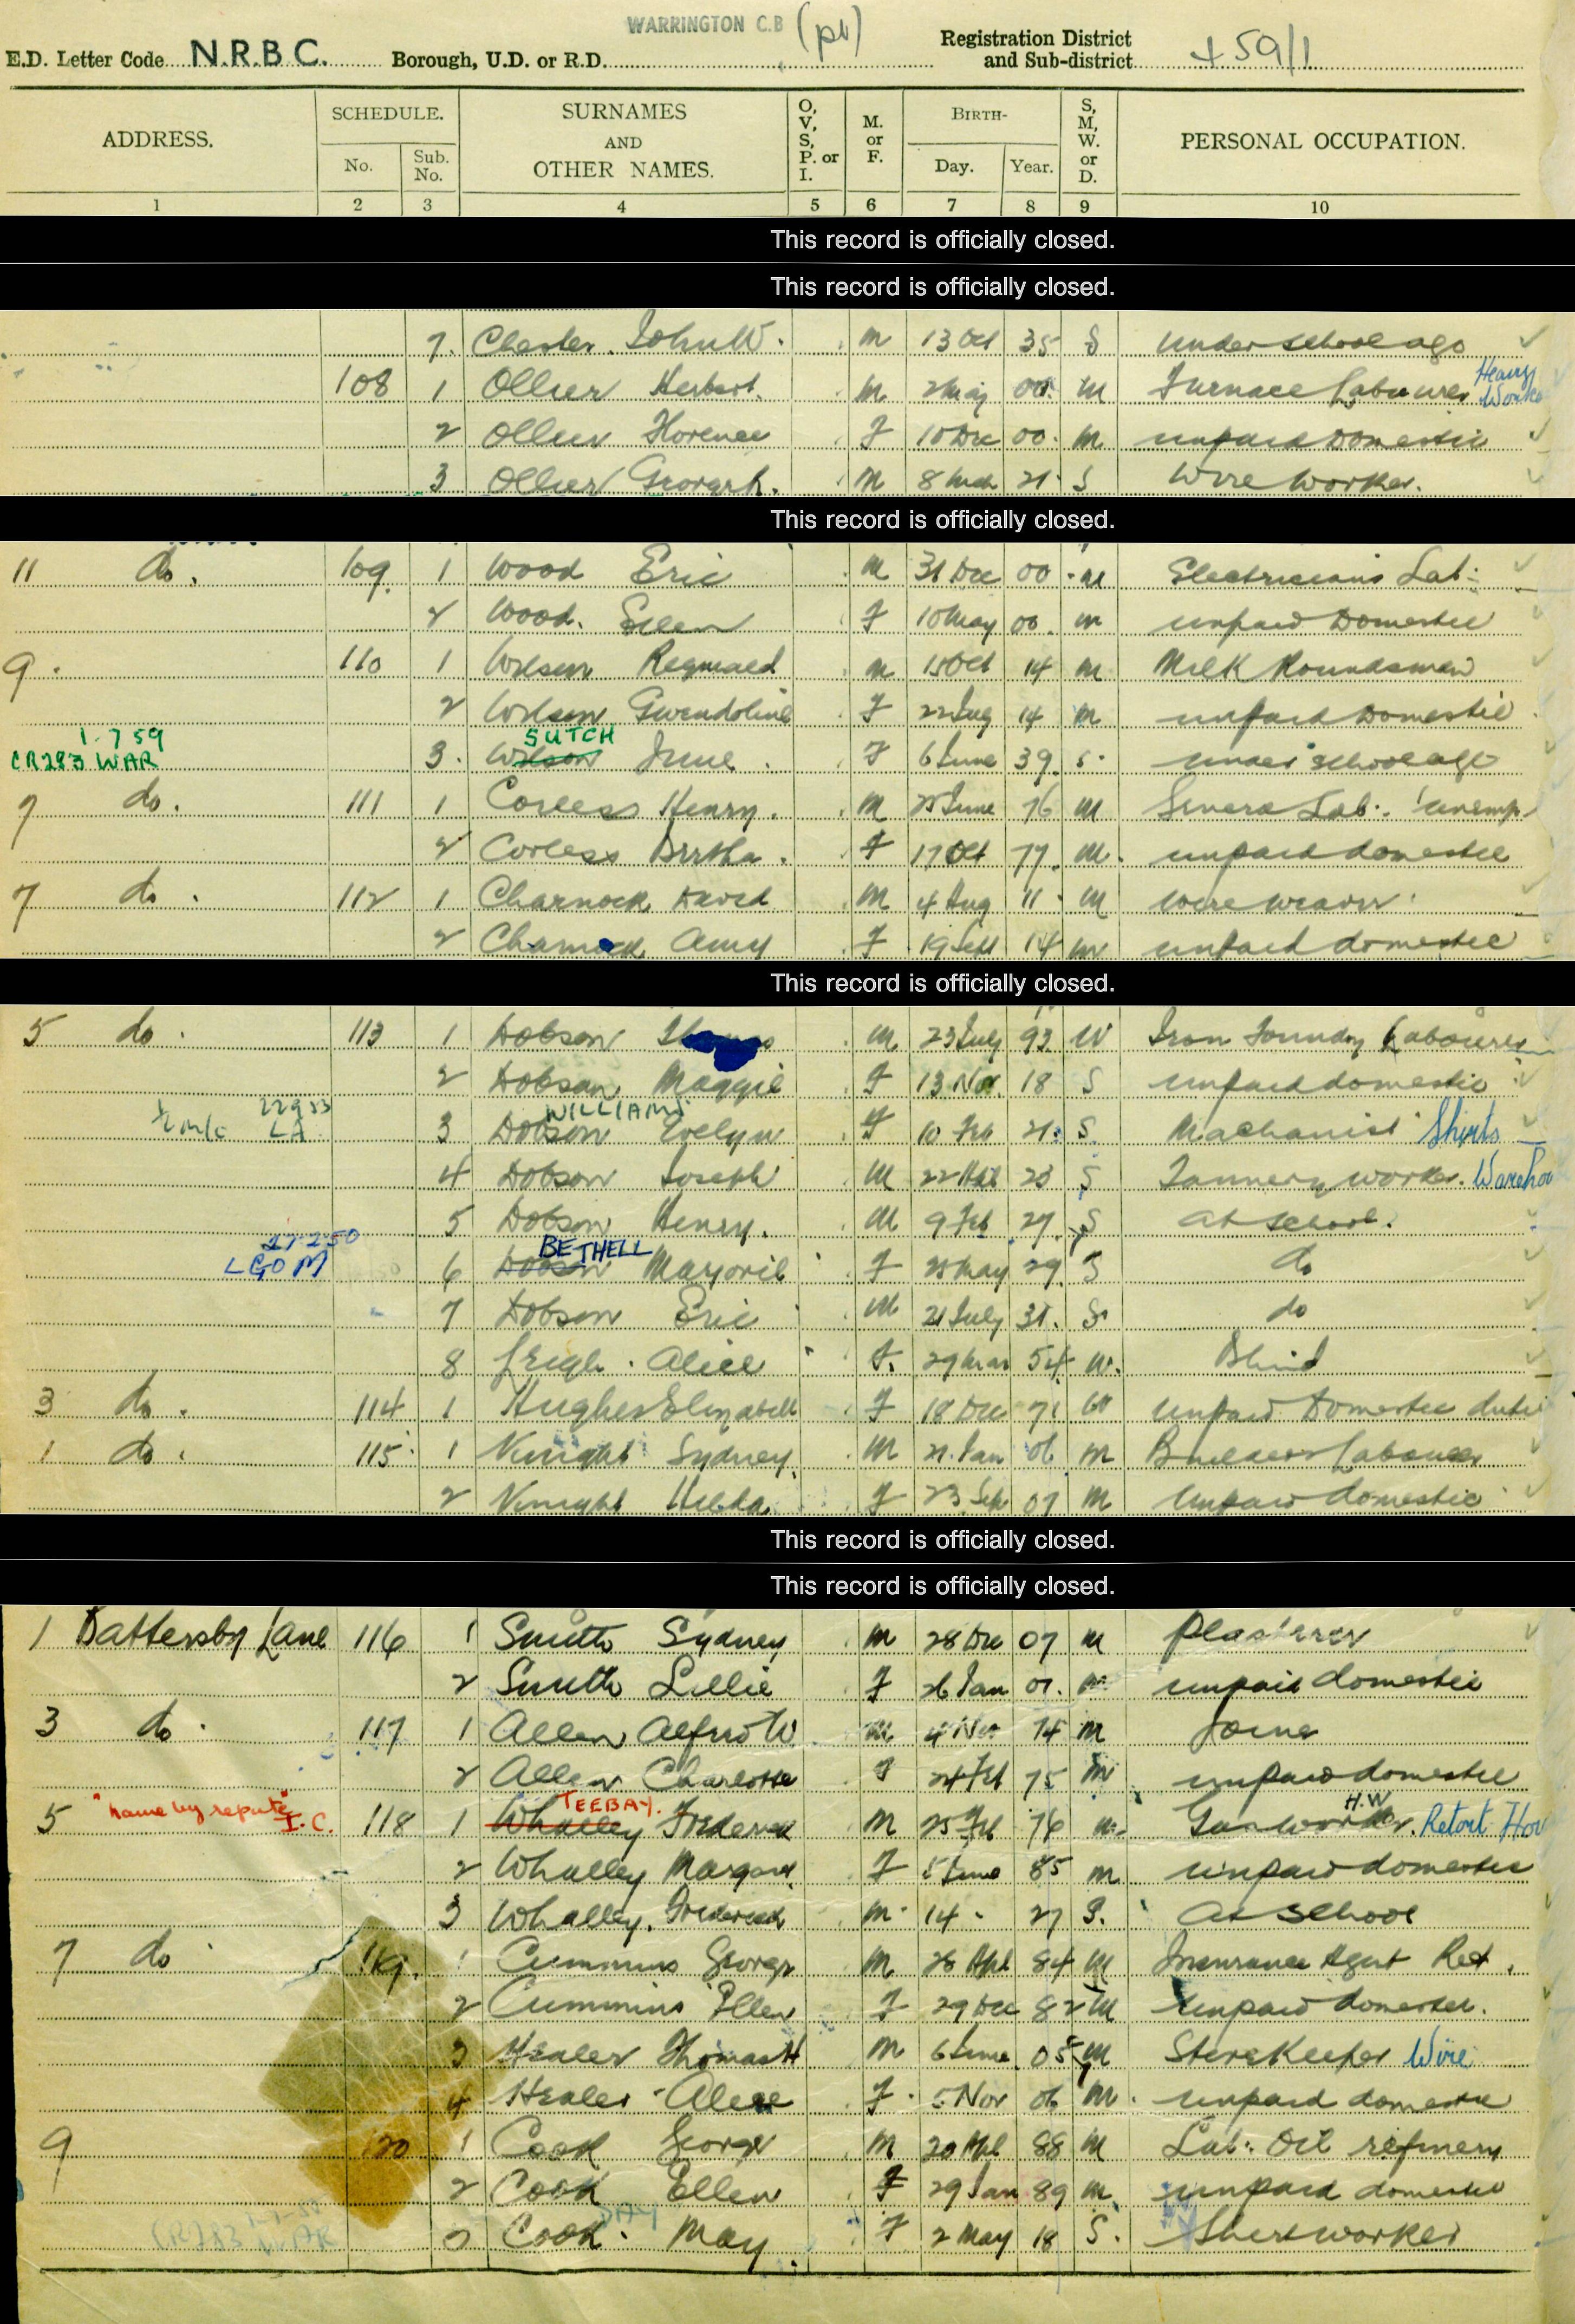 WARRINGTON C.B (pt)
E.D. Letter Code N.R.B.C. Borough, U.D. or R.D. Registration District and Sub-district 459/1
ADDRESS. SCHEDULE. No. Sub. No. SURNAMES AND OTHER NAMES. O, V, S, P. or I. M. or F. BIRTH- Day. Year. S, M, W. or D. PERSONAL OCCUPATION.
1 2 3 4 5 6 7 8 9 10
This record is officially closed.
This record is officially closed.
7. Chester John W. M 13 Oct 35 S under school age
108 1 Ollier Herbert. M 2 May 00 M Furnace Labourer Heavy Worker
2 Ollier Florence F 10 Dec 00 M unpaid Domestic
3 Ollier George h. M 8 Mch 21 S Wire Worker.
This record is officially closed.
11 do. 109 1 Wood Eric M 31 Dec 00 M Electricians Lab:
2 Wood. Ellen F 10 May 00 M unpaid Domestic
9. 110 1 Wilson Reginald M 15 Oct 14 M Milk Roundsman
2 Wilson Gwendoline F 22 Aug 14 M unpaid Domestic
1-7 59 SUTCH
CR283 WAR 3. Wilson June F 6 June 39 S under school age
7 do. 111 1 Corless Henry. M 25 June 76 M General Lab: unemp
2 Corless Bertha. F 17 Oct 77 M unpaid domestic
7 do. 112 1 Charnock David M 4 Aug 11 M wire weaver
2 Charnock Amy F 19 Sept 14 M unpaid domestic
This record is officially closed.
5 do. 113 1 Dobson Thomas M 23 July 93 W Iron Foundry Labourer
2 Dobson Maggie F 13 Nov 18 S unpaid domestic
22953 LA WILLIAMS
3 Dobson Evelyn F 10 Feb 21 S Machanist Shirts
4 Dobson Joseph M 22 23 S Tannery worker. Wareho
5 Dobson Henry. M 9 Feb 27 S at school.
27-2-50 BETHELL
LGOM 6 Dobson Marjorie F 25 May 29 S do
7 Dobson Eric M 21 July 31. S do
8 Leigh. Alice F. 29 Mar 54 W. Blind
3 do. 114 1 Hughes Elizabeth F 18 Dec 71 W unpaid Domestic duti
1 do. 115 1 Knight Sydney. M 21 Jan 06 M Builders Labourer
2 Knight Hilda. F 23 Sep 07 M Unpaid domestic
This record is officially closed.
This record is officially closed.
1 Battersby Lane 116 1 Smith Sydney M 28 Dec 07 M Plasterer
2 Smith Lillie F 26 Jan 07. M unpaid domestic
3 do. 117 1 Allen Alfred W. M 4 Nov 74 M Joiner
2 Allen Charlotte F 24 Feb 75 M unpaid domestic
"name by repute" I.C. TEEBAY. H.W
5 118 1 Whalley Frederick M 25 Feb 76 M Gas worker. Retort Hou
2 Whalley Margaret. F 5 June 85 M unpaid domestic
3 Whalley. Frederick M 14 27 S. At School
7 do 119. 1 Cummins George M 28 Apl 84 M Insurance Agent Ret.
2 Cummins Ellen F 29 Dec 82 M Unpaid domestic.
3 Healer Thomas H M 6 June 05 M Storekeeper Wire
4 Healer Alice F. 5 Nov 06 M. unpaid domestic
9 120 1 Cook George M 20 Apl 88 M Lab: Oil refinery
2 Cook Ellen F 29 Jan 89 M unpaid domestic
CR283 WAR
3 Cook. May. F 2 May 18 S. Shirt worker